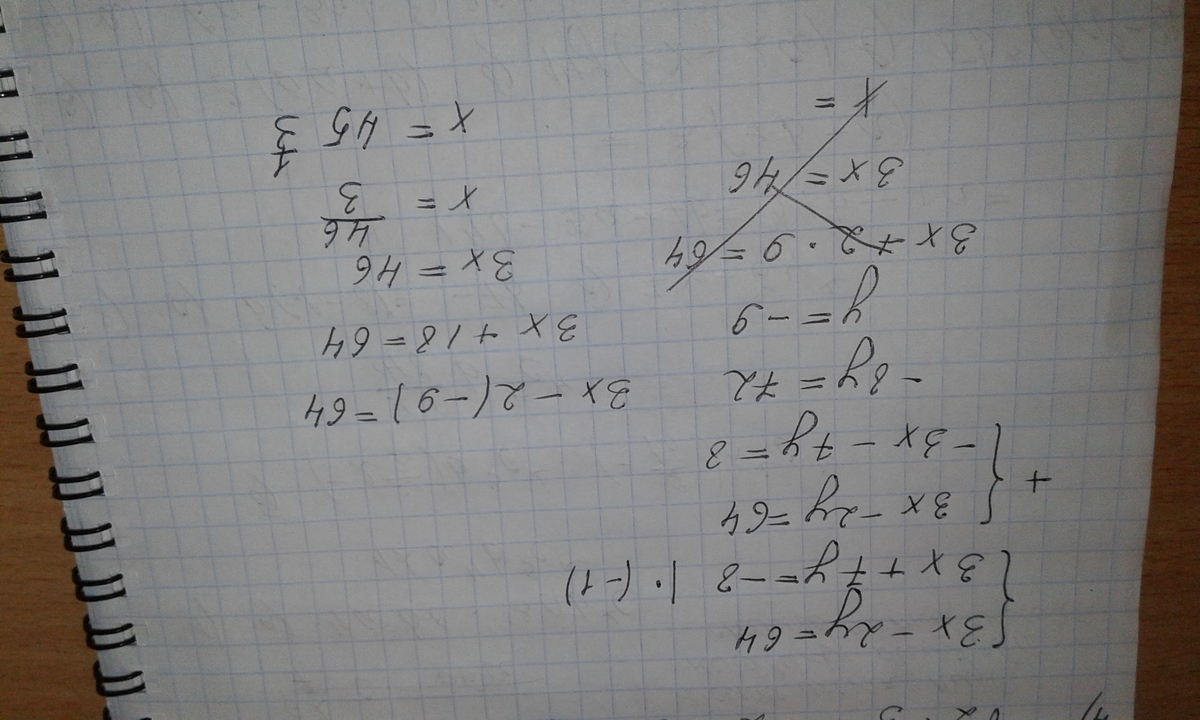 3x - 2y = 64
3x + 7y = -8 | · (-1)
+ 3x - 2y = 64
-3x - 7y = 8
- 8y = 72
y = -9
3x + 2 · 9 = 64
3x = 46
x =
3x - 2(-9) = 64
3x + 18 = 64
3x = 46
x = 46/3
x = 45 1/3